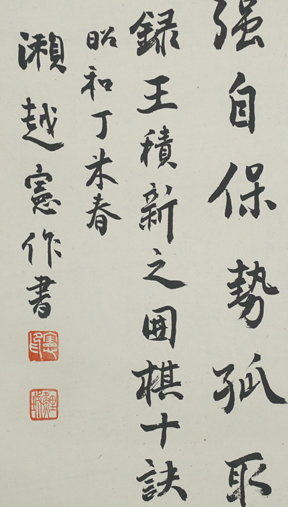 强自保勢孤取
録王積新之囲棋十訣
昭和丁未春
瀬越憲作書